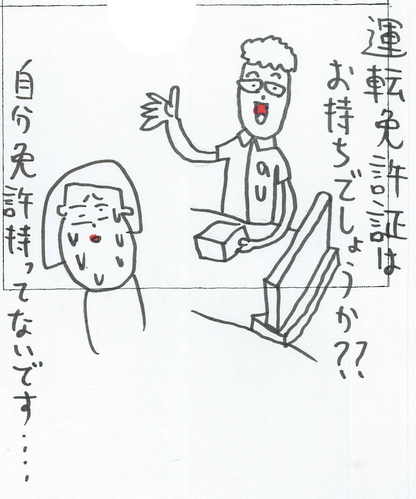 運転免許証は
お持ちでしょうか??
au
自分免許持ってないです....